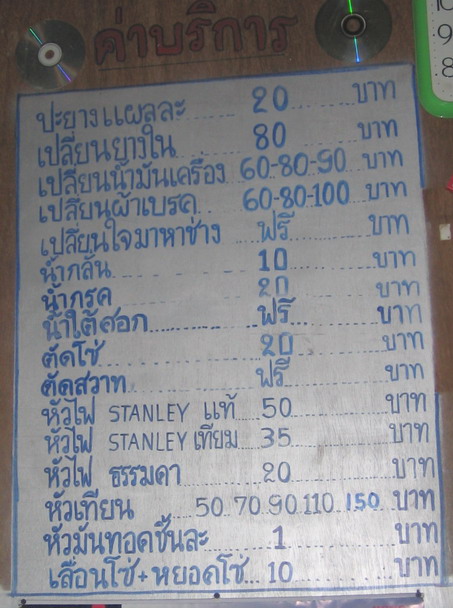 ค่าบริการ
ปะยางแผลละ ...... 20 ......... บาท
เปลี่ยนยางใน ...... 80 ......... บาท
เปลี่ยนน้ำมันเครื่อง 60-80-90 บาท
เปลี่ยนผ้าเบรค ...... 60-80-100 บาท
เปลี่ยนใจมาหาช่าง ... ฟรี ......... บาท
น้ำกลั่น ......... 10 ......... บาท
น้ำกรด ......... 20 ......... บาท
น้ำใต้ศอก ......... ฟรี ......... บาท
ตัดโซ่ ......... 20 ......... บาท
ตัดสวาท ......... ฟรี ......... บาท
หัวไฟ STANLEY แท้ 50 ......... บาท
หัวไฟ STANLEY เทียม 35 ......... บาท
หัวไฟ ธรรมดา ...... 20 ......... บาท
หัวเทียน ...... 50..70..90..110..150 บาท
หัวมันทอดชิ้นละ ...... 1 ......... บาท
เลื่อนโซ่+หยอดโซ่ ... 10 ......... บาท
10
9
8